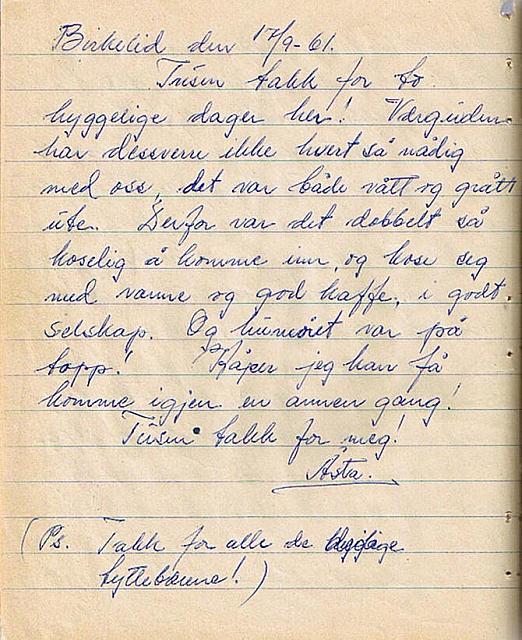 Birkelid den 17/9-61.
Tusen takk for to
hyggelige dager her! Værguden
har dessverre ikke hvert så nådig
med oss, det var både vått og grått
ute. Derfor var det dobbelt så
koselig å komme inn, og kose seg
med varme og god kaffe, i godt
selskap. Og humøret var på
topp! Håper jeg kan få
komme igjen en annen gang!
Tusen takk for meg!
Åsta.
(Ps. Takk for alle de
hyttebærene!)